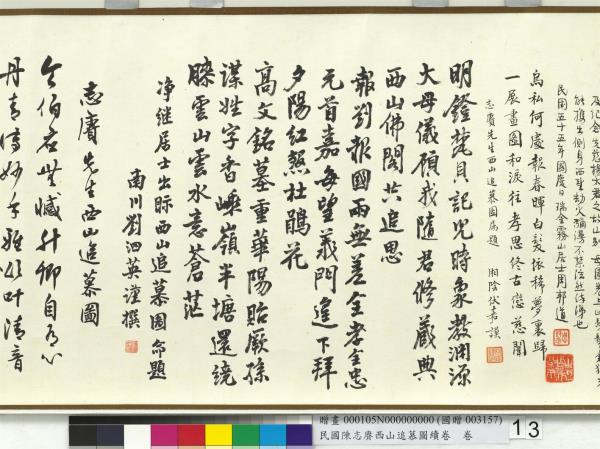 民國五十五年國慶日瑞金霧山居士周邦道
烏私何處報春暉白髮依稀夢裏歸
一展畫圖和淚往孝思終古戀慈闈
志賡先生西山追慕圖屬題 湘陰伏嘉謨
明鐙梵貝記兒時象教淵源
大母儀頎我隨君修藏典
西山佛閣共追思
報劉報國兩無差全孝全忠
元首嘉每望義門進下拜
夕陽紅照杜鵑花
高文銘墓重華陽貽厥孫
謀姓字香嵊嶺半塘還繞
膝雲山雲水意蒼茫
淨繼居士出眎西山追慕圖命題
南川劉泗英謹撰
志賡先生西山追慕圖
丹青傳妙手雅頌叶清音
贈畫 000105N000000000 (國贈 003157)
民國陳志賡西山追慕圖續卷 卷
13